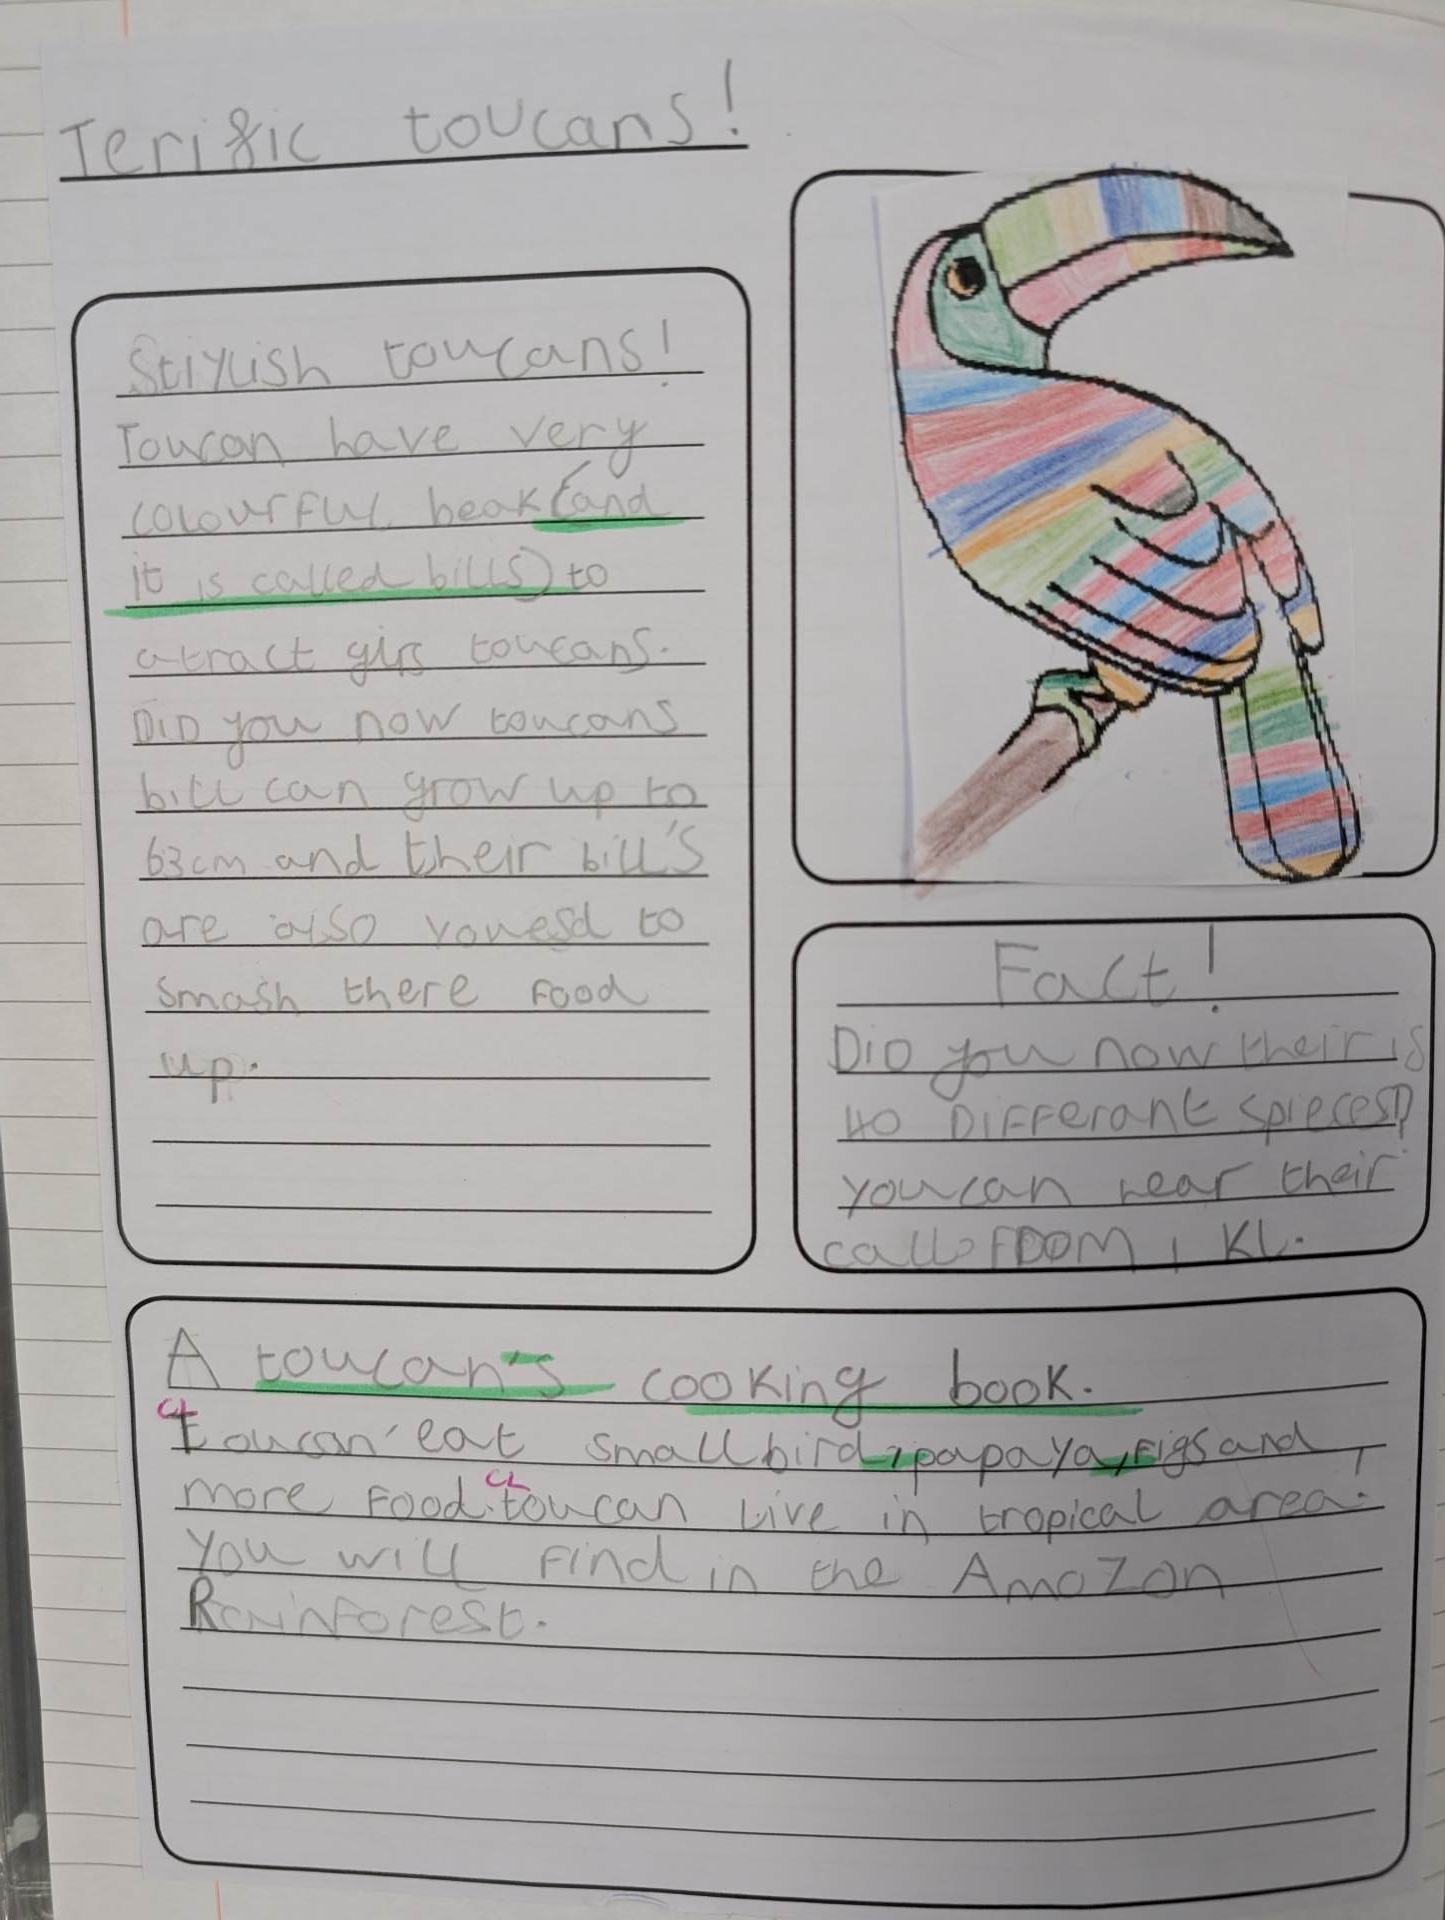 Terific toucans!
Stiylish toucans!
Toucan have very
colourful beak (and
it is called bills) to
atract girs toucans.
DiD you now toucans
bill can grow up to
63cm and their bill's
are also to
smash there food
up.
Fact!
DiD you now their is
40 Differant spieces?
you can hear their
call
A toucan's cooking book.
CL
toucan eat small bird, papaya, figs and
CL
more food. toucan live in tropical area!
You will find in the Amazon
Rainforest.